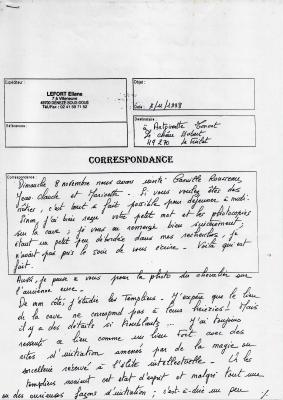 Expéditeur :
LEFORT Eliane
7 à Villeneuve
49700 DENEZE SOUS DOUE
Tél./Fax : 02 41 59 71 52
Objet :
Date : 2/11/1998
Références :
Destinataire :
à Antoinette
La chère
49 270 le
CORRESPONDANCE
Correspondance :
Dimanche 8 novembre nous avons invité Camille Rousseau
Jean-Claude et Mariette. Si vous voulez être des
nôtres, c'est tout à fait possible pour déjeuner à midi.
Sinon, j'ai bien reçu votre petit mot et les photocopies
sur la cave ; je vous en remercie bien sincèrement ;
étant un petit peu débordée dans mes recherches, je
n'avais pas pris le soin de vous écrire. Voilà qui est
fait.
Aussi, je pense à vous pour la photo du chevalier sur
l'ancienne cave.
De mon côté, j'étudie les Templiers. J'espère que le lieu
de la cave ne correspond pas à leurs hérésies ! Mais
il y a des détails si troublants ... J'ai toujours
ressenti ce lieu comme un lieu fort avec des
rites d'initiation amenés par de la magie ou
sorcellerie réservé à l'élite intellectuelle. Or les
templiers avaient cet état d'esprit et malgré tout une
ou des curieuses façons d'initiation ; c'est-à-dire un peu